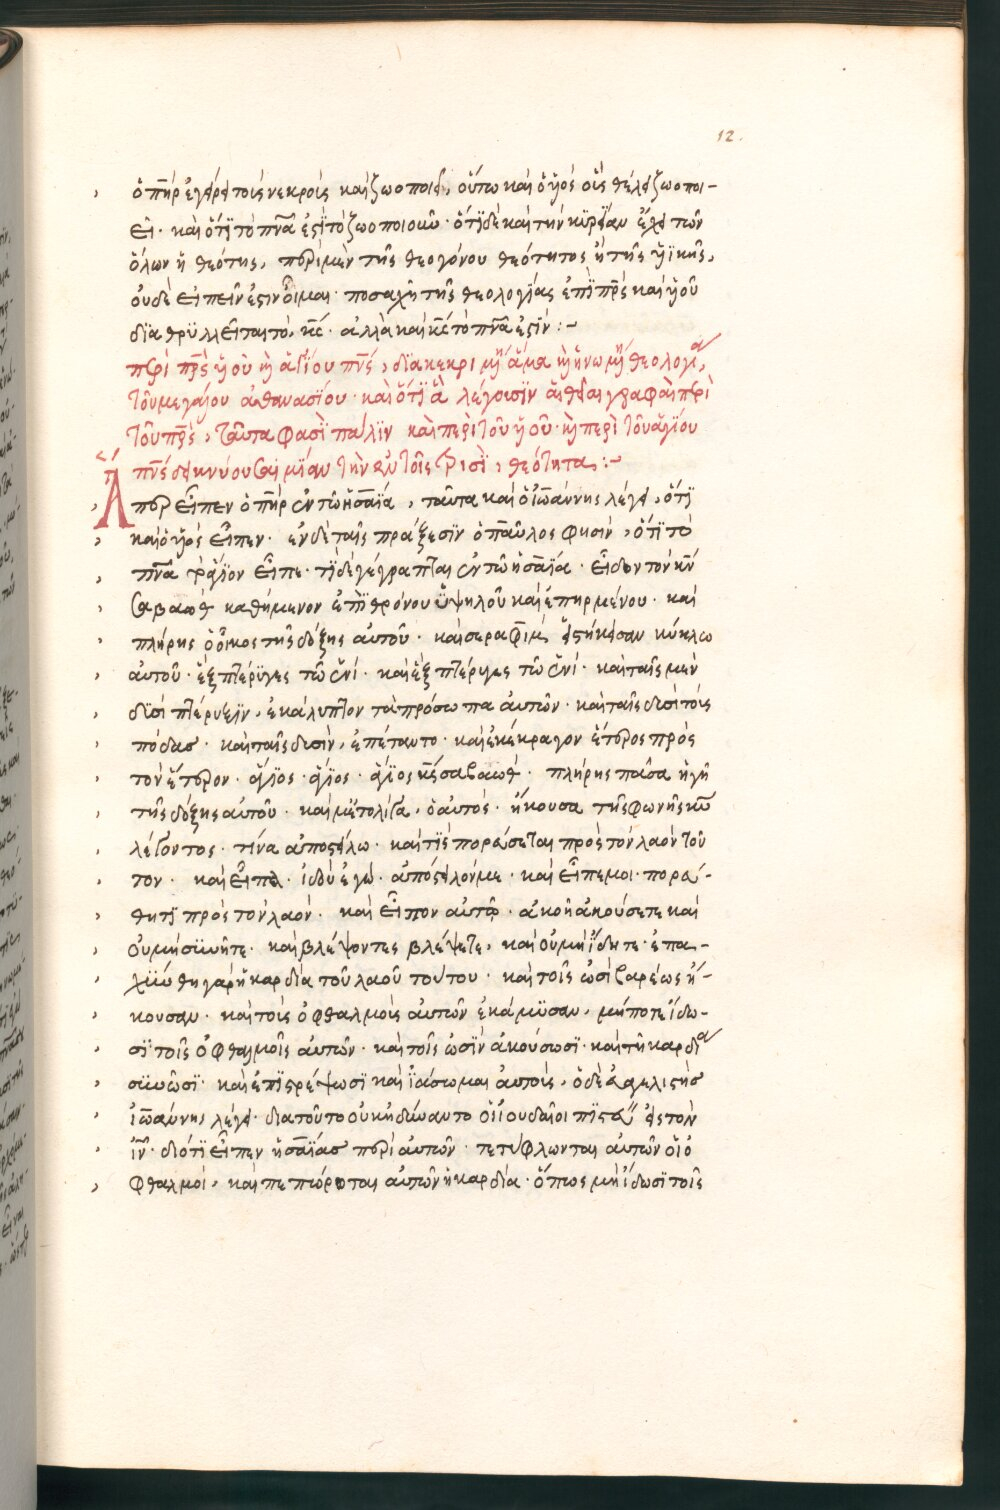 12.
ὁ πη̅ρ ἐγείρει τοὺς νεκροὺς καὶ ζωοποιεῖ, οὕτω καὶ ὁ ὑϊὸς οὓς θέλει ζωοποι-
εῖ· καὶ ὅτϊ τὸ πν̅α ἐστὶ τὸ ζωοποιοῦν· ὅτϊ δὲ καὶ τὴν κυρείαν ἔχει τῶν
ὅλων ἡ θεότης, περὶ μὲν τῆς θεογόνου θεότητος ἢ τῆς ὑϊκῆς,
οὐδὲ εἰπεῖν ἐστιν οἶμαι· ποσαχῆ τῆς θεολογίας ἐπὶ πρ̅ς καὶ ὑοῦ
διαθρϋλλεῖται τὸ, κ̅ς· ἀλλὰ καὶ κ̅ς τὸ πν̅α ἐστίν :-
περὶ πρ̅ς ὑοῦ καὶ ἁγίου πν̅ς, διακεκριμένη ἅμα καὶ ἡνωμένη θεολογία,
τοῦ μεγάλου ἀθανασίου· καὶ ὅτϊ ἃ λέγουσιν αἱ θεῖαι γραφαὶ περὶ
τοῦ πρ̅ς, ταῦτα φασὶ πάλιν καὶ περὶ τοῦ ὑοῦ· καὶ περὶ τοῦ ἁγίου
πν̅ς δεικνύουσαι μίαν τὴν ἐν τοῖς τρισὶ, θεότητα :-
Ἅπερ εἶπεν ὁ πη̅ρ ἐν τῷ ἡσαΐα, ταῦτα καὶ ὁ ἰωάννης λέγει, ὅτϊ
καὶ ὁ ὑὸς εἶπεν· ἐν δὲ ταῖς πράξεσϊν ὁ παῦλος φησὶν, ὅτϊ τὸ
πν̅α τὸ ἅγϊον εἶπε· τϊ δὲ γέγραπται ἐν τῷ ἡσαΐα· εἶδον τὸν κν̅
σαβαωθ καθήμενον ἐπὶ θρόνου ὑψηλοῦ καὶ ἐπηρμένου· καὶ
πλήρης ὁ οἶκος τῆς δόξης αὐτοῦ· καὶ σεραφὶμ εἱστήκεισαν κύκλω
αὐτοῦ· ἓξ πτέρυγες τῶ ἑνί· καὶ ἓξ πτέρυγες τῶ ἑνί· καὶ ταῖς μὲν
δυσὶ πτέρυξϊν, ἐκάλυπτον τὰ πρόσωπα αὐτῶν· καὶ ταῖς δυσὶ τοὺς
πόδας· καὶ ταῖς δυσὶν, ἐπέταντο· καὶ ἐκέκραγον ἕτερος πρὸς
τὸν ἕτερον· ἅγϊος· ἅγϊος· ἅγϊος κ̅ς σαβαώθ· πλήρης πᾶσα ἡ γῆ
τῆς δόξης αὐτοῦ· καὶ μετ' ὀλίγα, ὁ αὐτός· ἤκουσα τῆς φωνῆς κυ̅
λέγοντος· τίνα ἀποστείλω· καὶ τίς πορεύσεται πρὸς τὸν λαὸν τοῦ
τον· καὶ εἶπα· ἰδοὺ ἐγώ· ἀπόστειλόν με· καὶ εἶπέ μοι· πορεύ-
θητϊ πρὸς τὸν λαόν· καὶ εἶπον αὐτῷ· ἀκοῇ ἀκούσετε καὶ
οὐ μὴ συνῆτε· καὶ βλέψοντες βλέψετε, καὶ οὐ μὴ ἴδητε· ἐπα-
χύνθη γὰρ ἡ καρδία τοῦ λαοῦ τούτου· καὶ τοῖς ὠσὶ βαρέως ἤ-
κουσαν· καὶ τοὺς ὀφθαλμοὺς αὐτῶν ἐκάμϋσαν, μήποτε ἴδω-
σϊ τοῖς ὀφθαλμοῖς αὐτῶν· καὶ τοῖς ὠσὶν ἀκούσωσϊ· καὶ τῆ καρδία
συνῶσϊ· καὶ ἐπϊστρέψωσϊ καὶ ἰάσωμαι αὐτούς, ὁ δὲ εὐαγγελιστὴς
ἰωάννης λέγει· διατοῦτο οὐκ ἠδύναντο οἱ ἰουδαῖοι πϊστεύειν εἰς τὸν
ιν̅· διότϊ εἶπεν ἡσαΐας περὶ αὐτῶν· τετύφλωνται αὐτῶν οἱ ὀ
φθαλμοί, καὶ πεπώρωται αὐτῶν ἡ καρδία· ὅπως μὴ ἴδωσϊ τοῖς